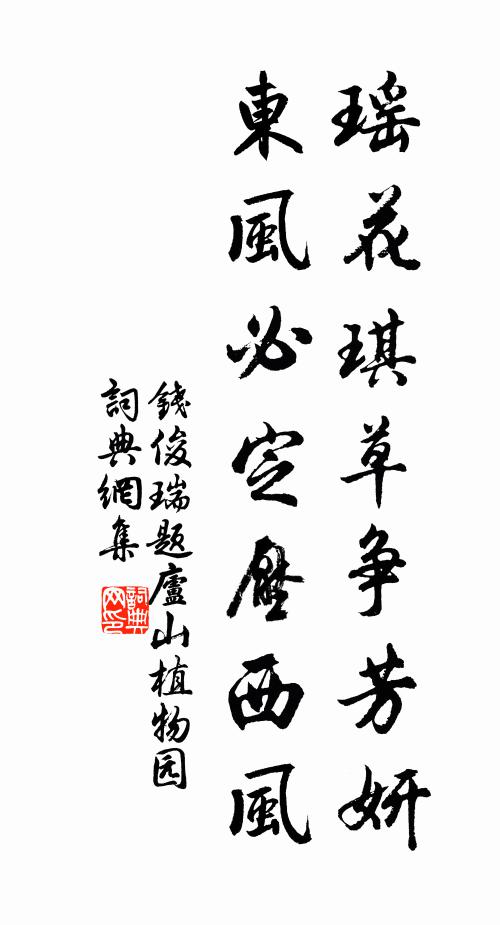 瑶花琪草争芳妍
東風必定壓西風
錢俊瑞题廬山植物园
詞典網集
詞典网印